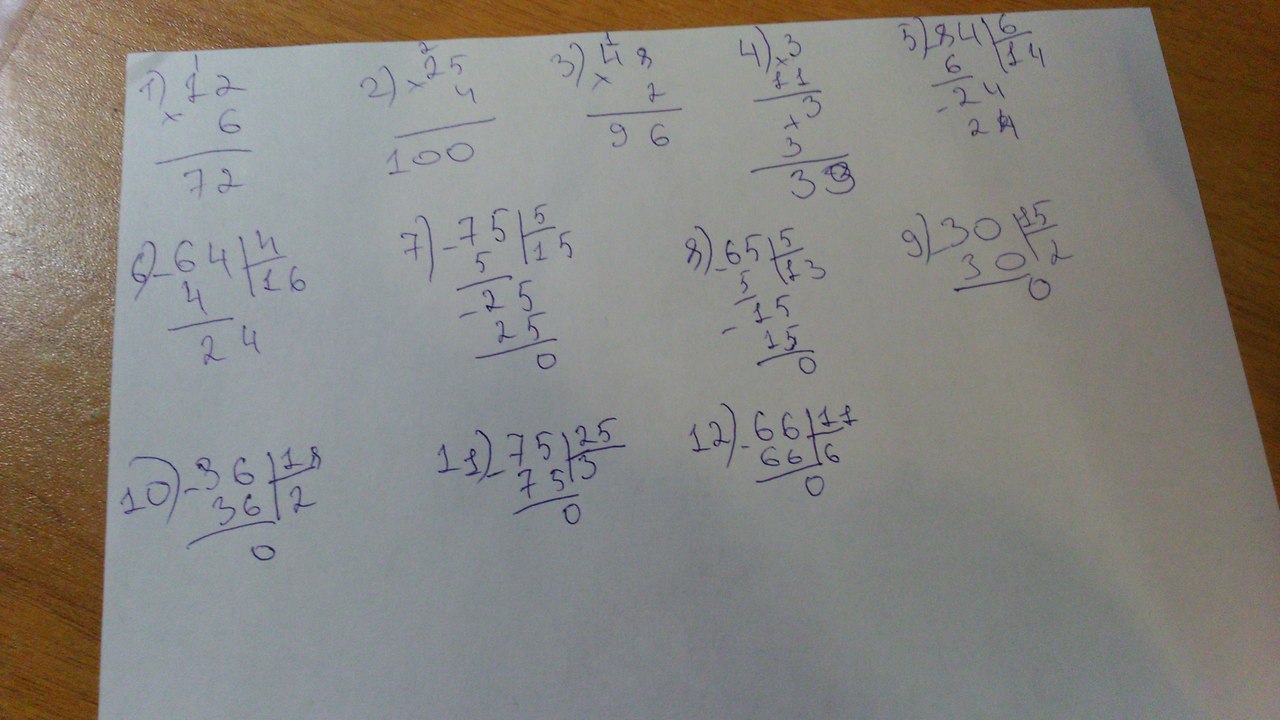 1) 1
12
× 6
72
2) 2
× 25
4
100
3) 1
× 48
2
96
4) × 3
11
3
+
3
33
5) - 84 | 6
6 | 14
- 24
24
6) - 64 | 4
4 | 16
24
7) - 75 | 5
5 | 15
- 25
25
0
8) - 65 | 5
5 | 13
- 15
15
0
9) - 30 | 15
30 | 2
0
10) - 36 | 18
36 | 2
0
11) - 75 | 25
75 | 3
0
12) - 66 | 11
66 | 6
0